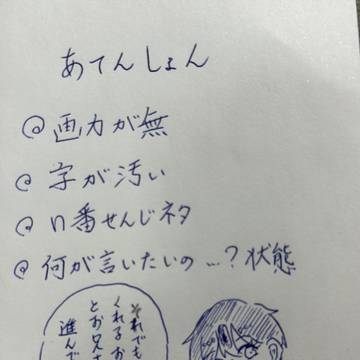 あてんしょん
@画力が無
@字が汚い
@n番せんじネタ
@何が言いたいの…?状態
それでも
くれるお
とお兄さ
進んで